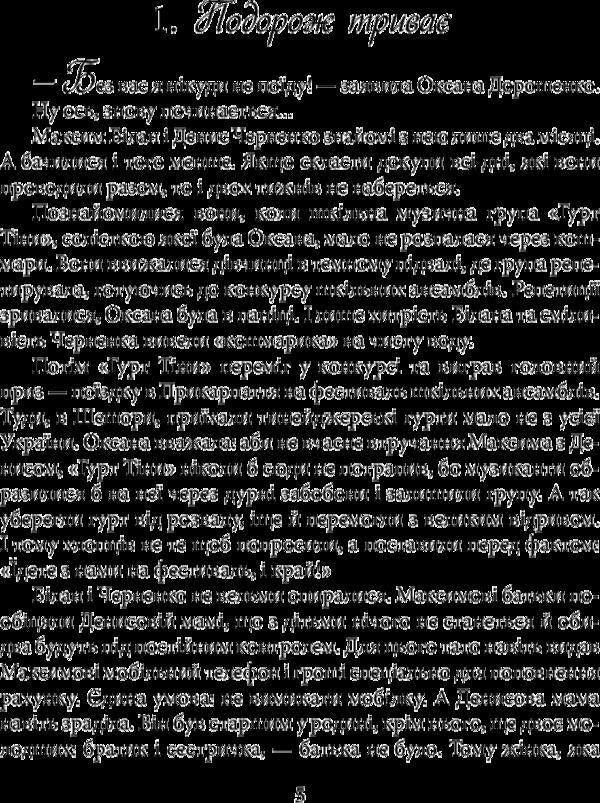 1. Подорож триває
— Без вас я нікуди не поїду! — заявила Оксана Дорошенко.
Ну ось, знову починається...
Максим Білан і Денис Черненко знайомі з нею лише два місяці.
А бачилися і того менше. Якщо скласти докупи всі дні, які вони
проводили разом, то і двох тижнів не набереться.
Познайомилися вони, коли шкільна музична група «Гурт
Тіни», солісткою якої була Оксана, мало не розпалася через кош-
мари. Вони ввижалися дівчинці в темному підвалі, де група репе-
тирувала, готуючись до конкурсу шкільних ансамблів. Репетиції
зривалися, Оксана була в паніці. І лише хитрість Білана та сміли-
вість Черненка вивели «кошмарика» на чисту воду.
Потім «Гурт Тіни» переміг у конкурсі та виграв головний
приз — поїздку в Прикарпаття на фестиваль шкільних ансамблів.
Туди, в Шешори, приїхали тинейджерські гурти мало не з усієї
України. Оксана вважала: аби не вчасне втручання Максима з Де-
нисом, «Гурт Тіни» ніколи б сюди не потрапив, бо музиканти об-
разилися б на неї через дурні забобони і залишили групу. А так
уберегли гурт від розвалу, іще й перемогли з великим відривом.
І тому хлопців не те щоб попросили, а поставили перед фактом:
«Їдете з нами на фестиваль, і край!»
Білан і Черненко не вельми опиралися. Максимові батьки по-
обіцяли Денисовій мамі, що з дітьми нічого не станеться й оби-
два будуть під постійним контролем. Для цього тато навіть видав
Максимові мобільний телефон і гроші спеціально для поповнення
рахунку. Єдина умова: не вимикати мобілку. А Денисова мама
навіть зраділа. Він був старшим у родині, крім нього, ще двоє мо-
лодших: братик і сестричка, — батька не було. Тому жінка, яка
5